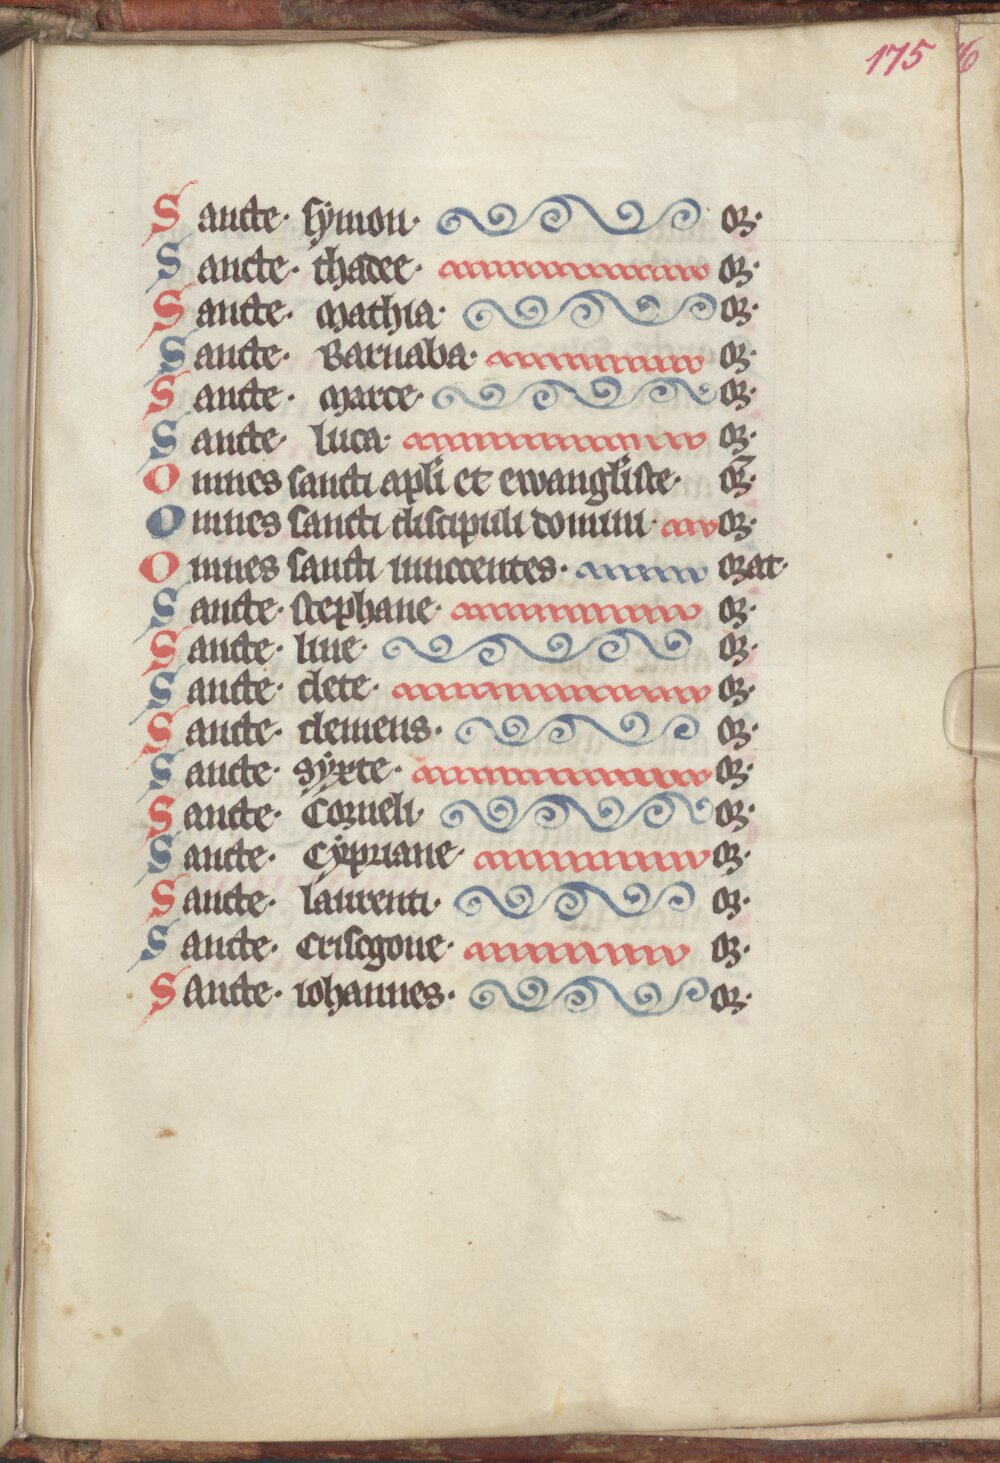 175
6
Sancte · symon · or ·
Sancte · thadee · or ·
Sancte · mathia · or ·
Sancte · Barnaba · or ·
Sancte · marce · or ·
Sancte · luca · or ·
Omnes sancti apli et ewangliste · or ·
Omnes sancti discipuli domini · or ·
Omnes sancti innocentes · orat ·
Sancte · stephane · or ·
Sancte · line · or ·
Sancte · clete · or ·
Sancte · clemens · or ·
Sancte · syxte · or ·
Sancte · Corneli · or ·
Sancte · Cypriane · or ·
Sancte · laurenti · or ·
Sancte · Criscgone · or ·
Sancte · iohannes · or ·